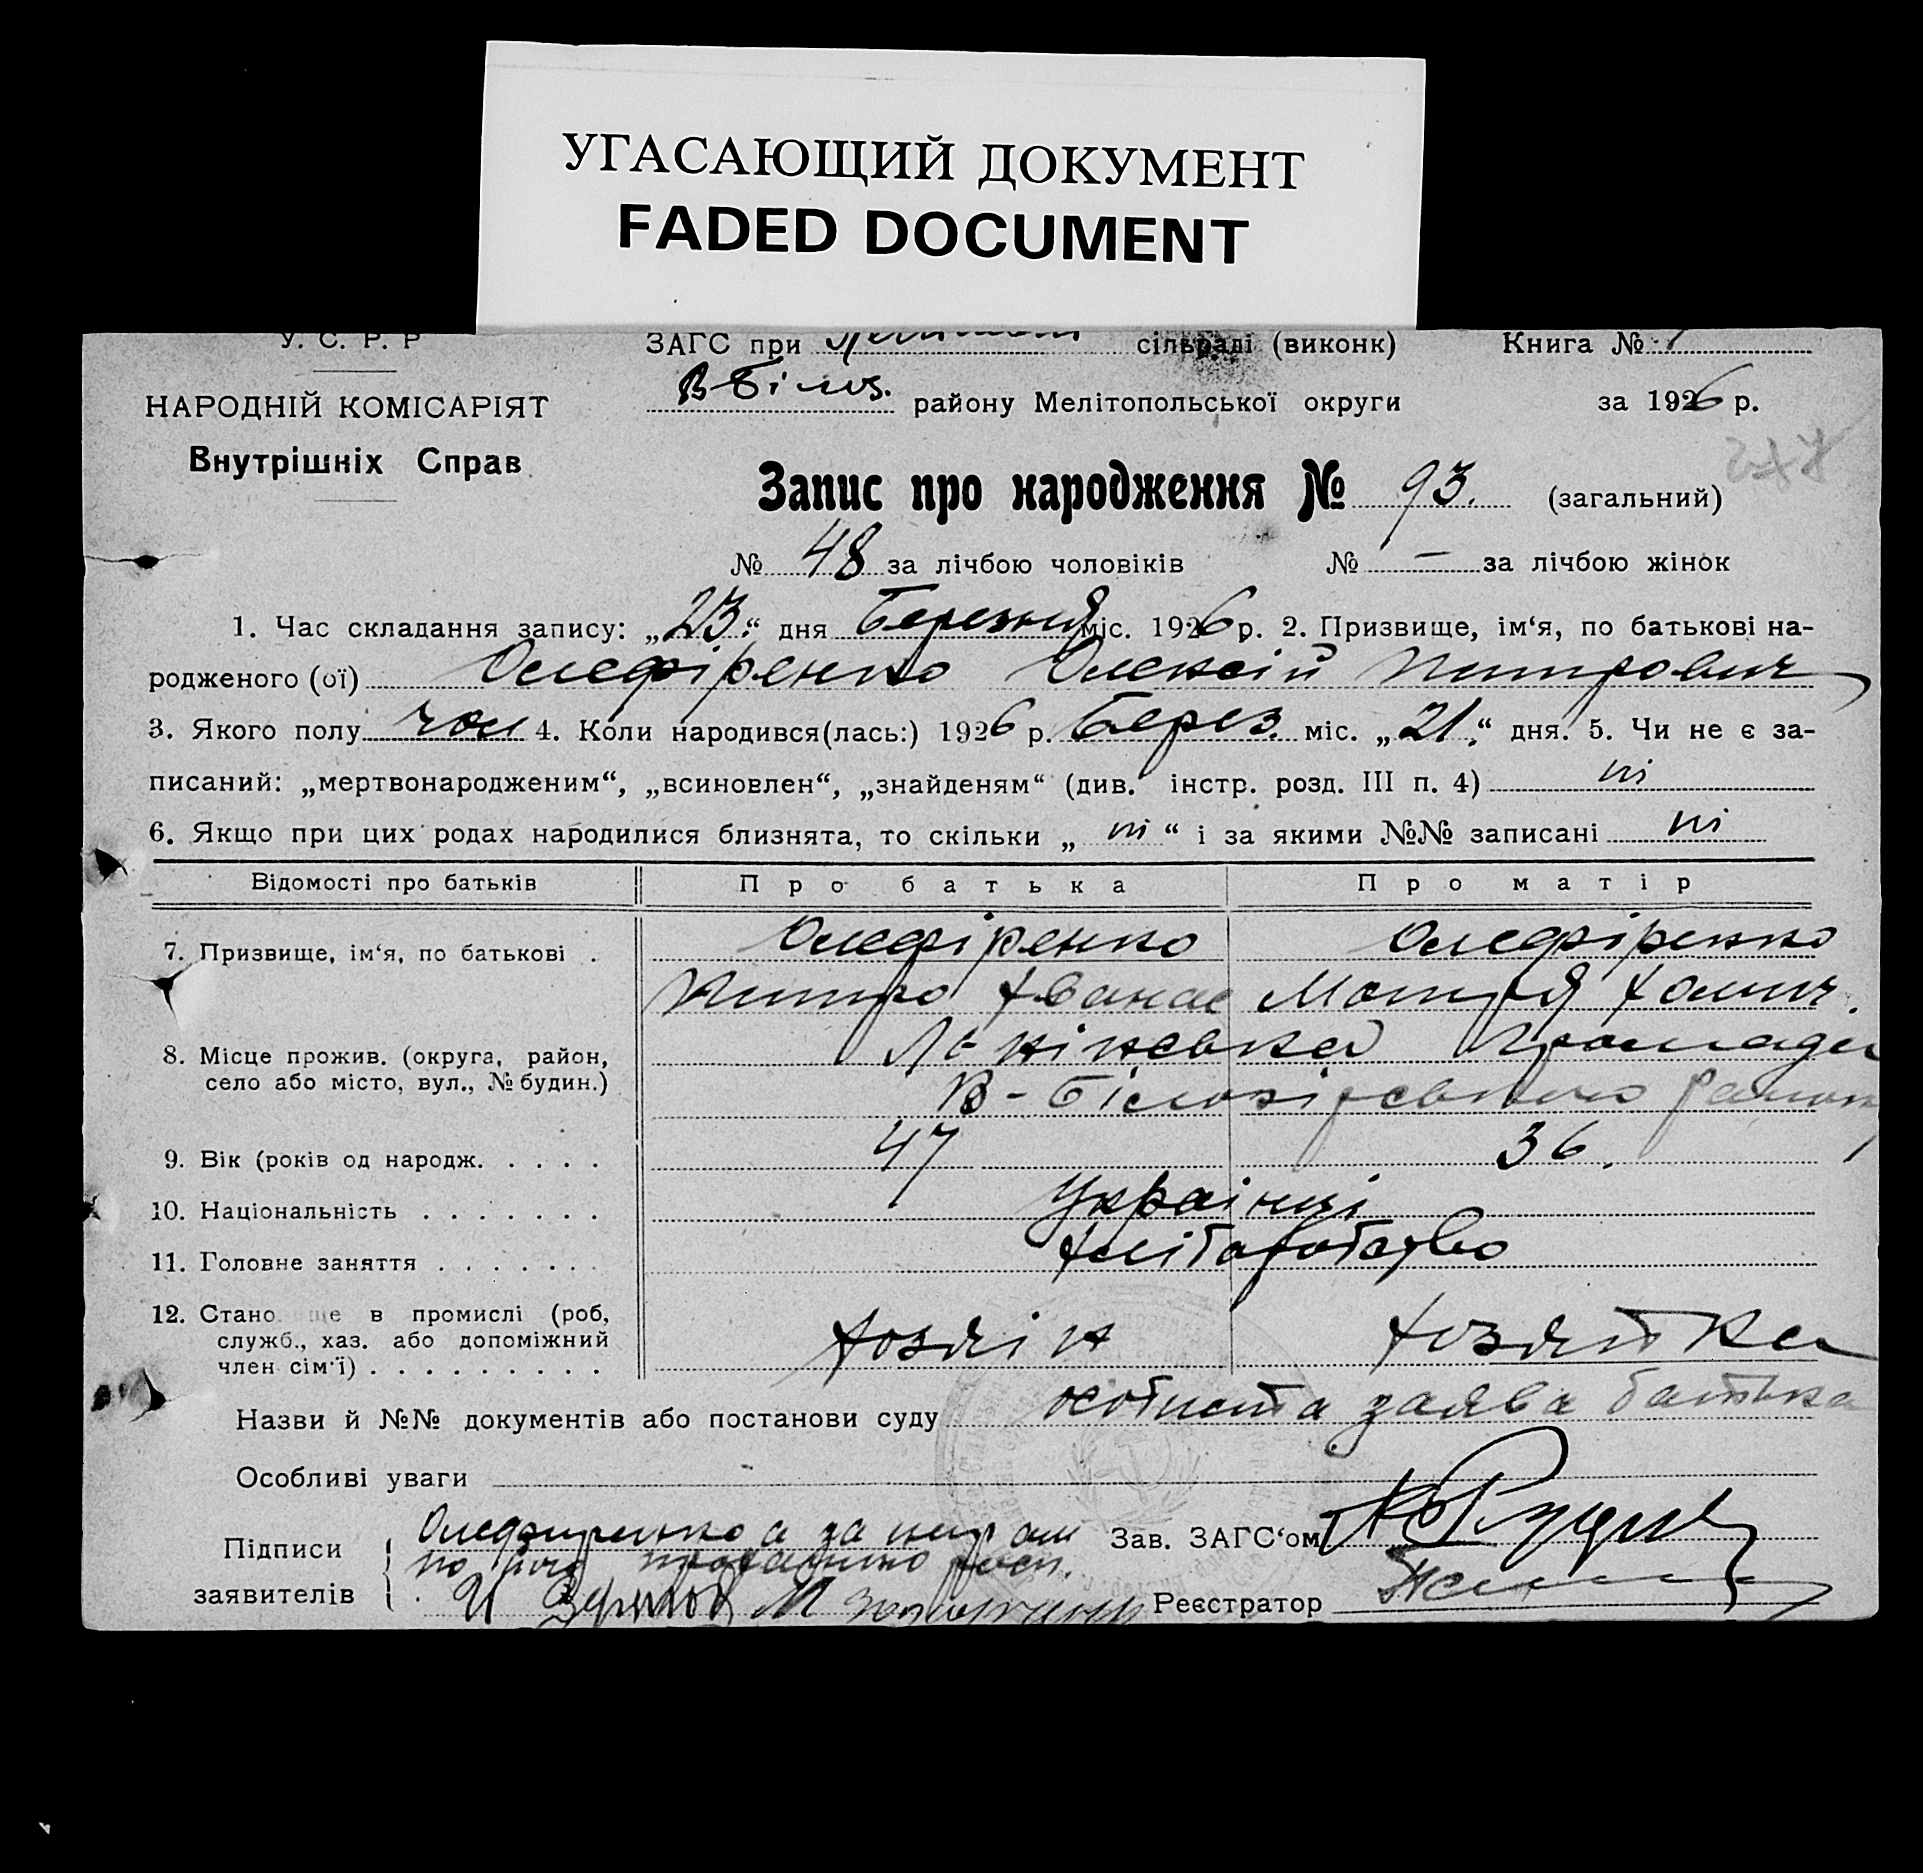 УГАСАЮЩИЙ ДОКУМЕНТ
FADED DOCUMENT
У. С. Р. Р
ЗАГС при сільраді (виконк) Книга №
НАРОДНІЙ КОМІСАРІЯТ
В-Білоз. району Мелітопольської округи за 1926 р.
Внутрішніх Справ
Запис про народження № 93. (загальний)
№ 48 за лічбою чоловіків № — за лічбою жінок
1. Час складання запису: „23.“ дня Березня міс. 1926 р. 2. Призвище, ім‘я, по батькові на-
родженого (ої) Олефіренко Олексій Митрович
3. Якого полу чол 4. Коли народився(лась:) 1926 р. Берез. міс. „21.“ дня. 5. Чи не є за-
писаний: „мертвонародженим“, „всиновлен“, „знайденям“ (див. інстр. розд. III п. 4) ні
6. Якщо при цих родах народилися близнята, то скільки „ ні “ і за якими №№ записані ні
Відомості про батьків Про батька Про матір
7. Призвище, ім‘я, по батькові . Олефіренко Олефіренко
Митро Хванас Мотря Хомич.
8. Місце прожив. (округа, район, село або місто, вул., № будин.) Ленінська Громада
В-Білозірського району
9. Вік (років од народж. . . . . 47 36.
10. Національність . . . . . . . Українці
11. Головне заняття . . . . . . . Хліборобство
12. Стано ще в промислі (роб,
служб., хаз. або допоміжний
член сім‘ї) . . . . . . . . . Хозяін Хозяйка
Назви й №№ документів або постанови суду особиста заява батька
Особливі уваги
Підписи заявителів Олефиренко а за негр ам
по його проханню росп.
Зав. ЗАГС‘ом
Реєстратор